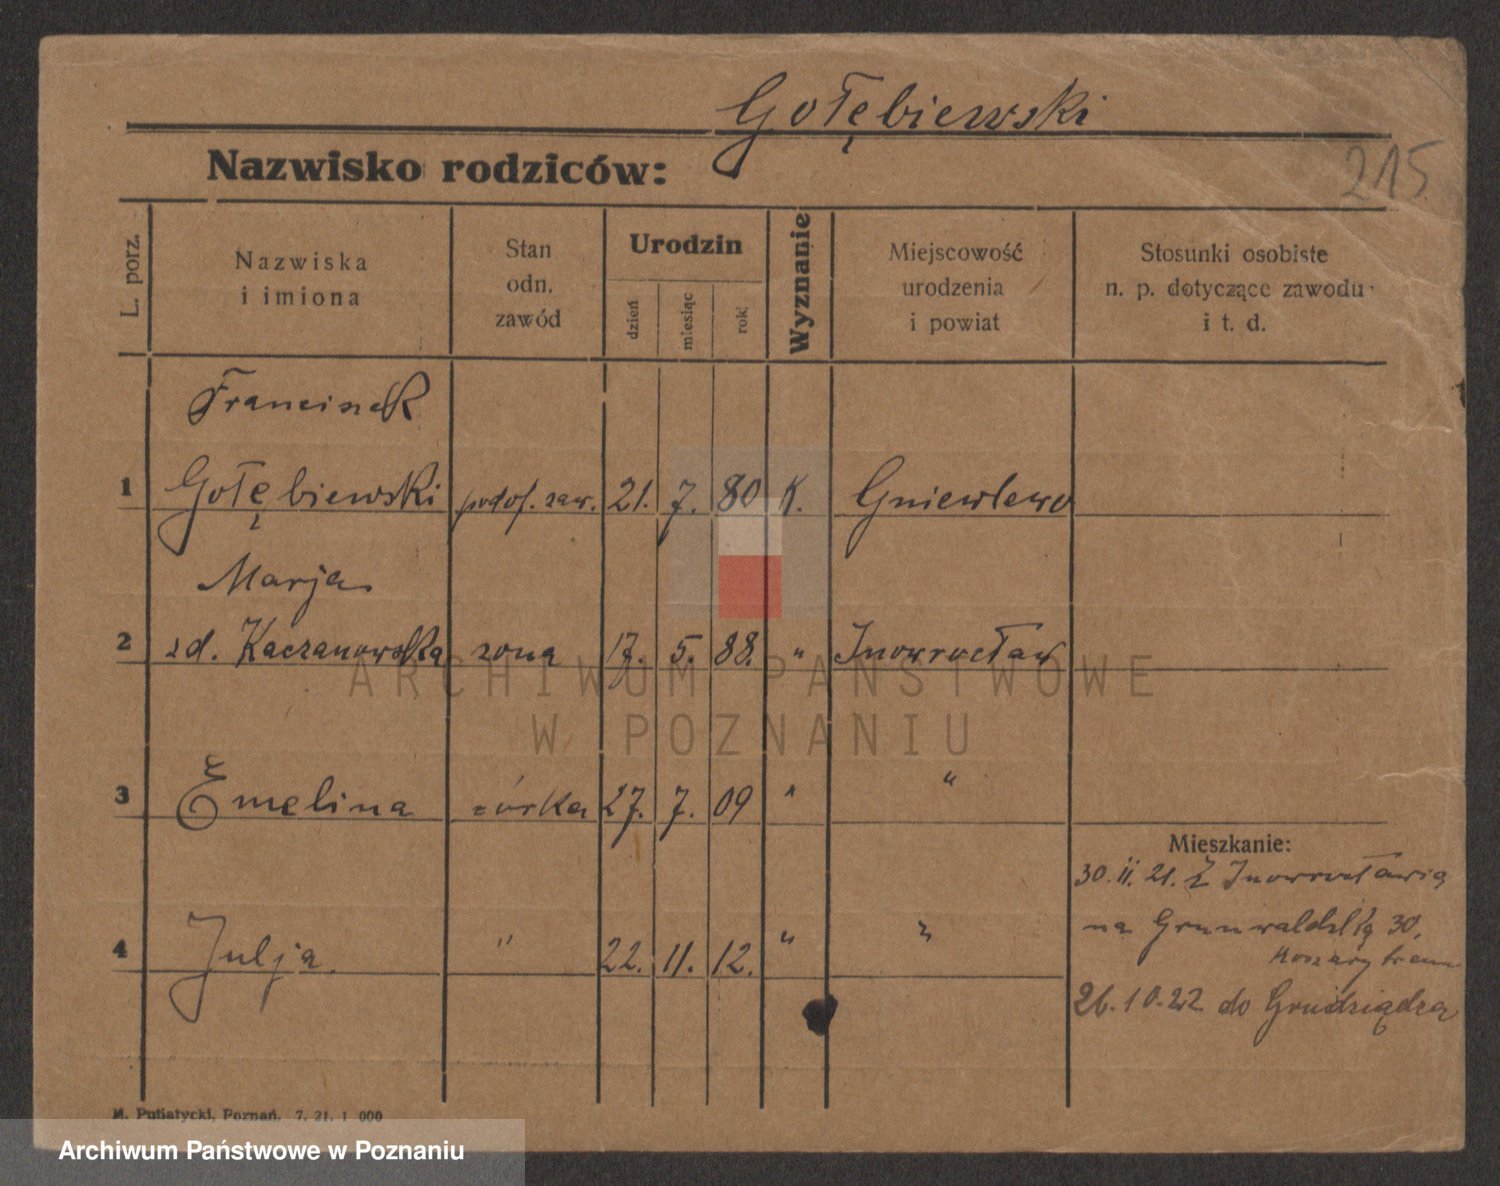 Gołębiewski
Nazwisko rodziców:
215
L. porz.
Nazwiska
i imiona
Stan
odn.
zawód
Urodzin
dzień
miesiąc
rok
Wyznanie
Miejscowość
urodzenia
i powiat
Stosunki osobiste
n. p. dotyczące zawodu
i t. d.
Franciszek
1 Gołębiewski podof. zaw. 21. 7. 80 K. Gniewkewo
Marja
2 zd. Kaczanowska żona 17. 5. 88. " Inowrocław
ARCHIWUM PAŃSTWOWE
W POZNANIU
3 Emelina córka 27. 7. 09 " "
Mieszkanie:
30. 11. 21. Z Inowrocławia
na Grunwaldzką 30.
4 Julja " 22. 11. 12. " "
Koszary
26. 10. 22 do Grudziądza
M. Putiatycki, Poznań. 7. 21. 1 000
Archiwum Państwowe w Poznaniu